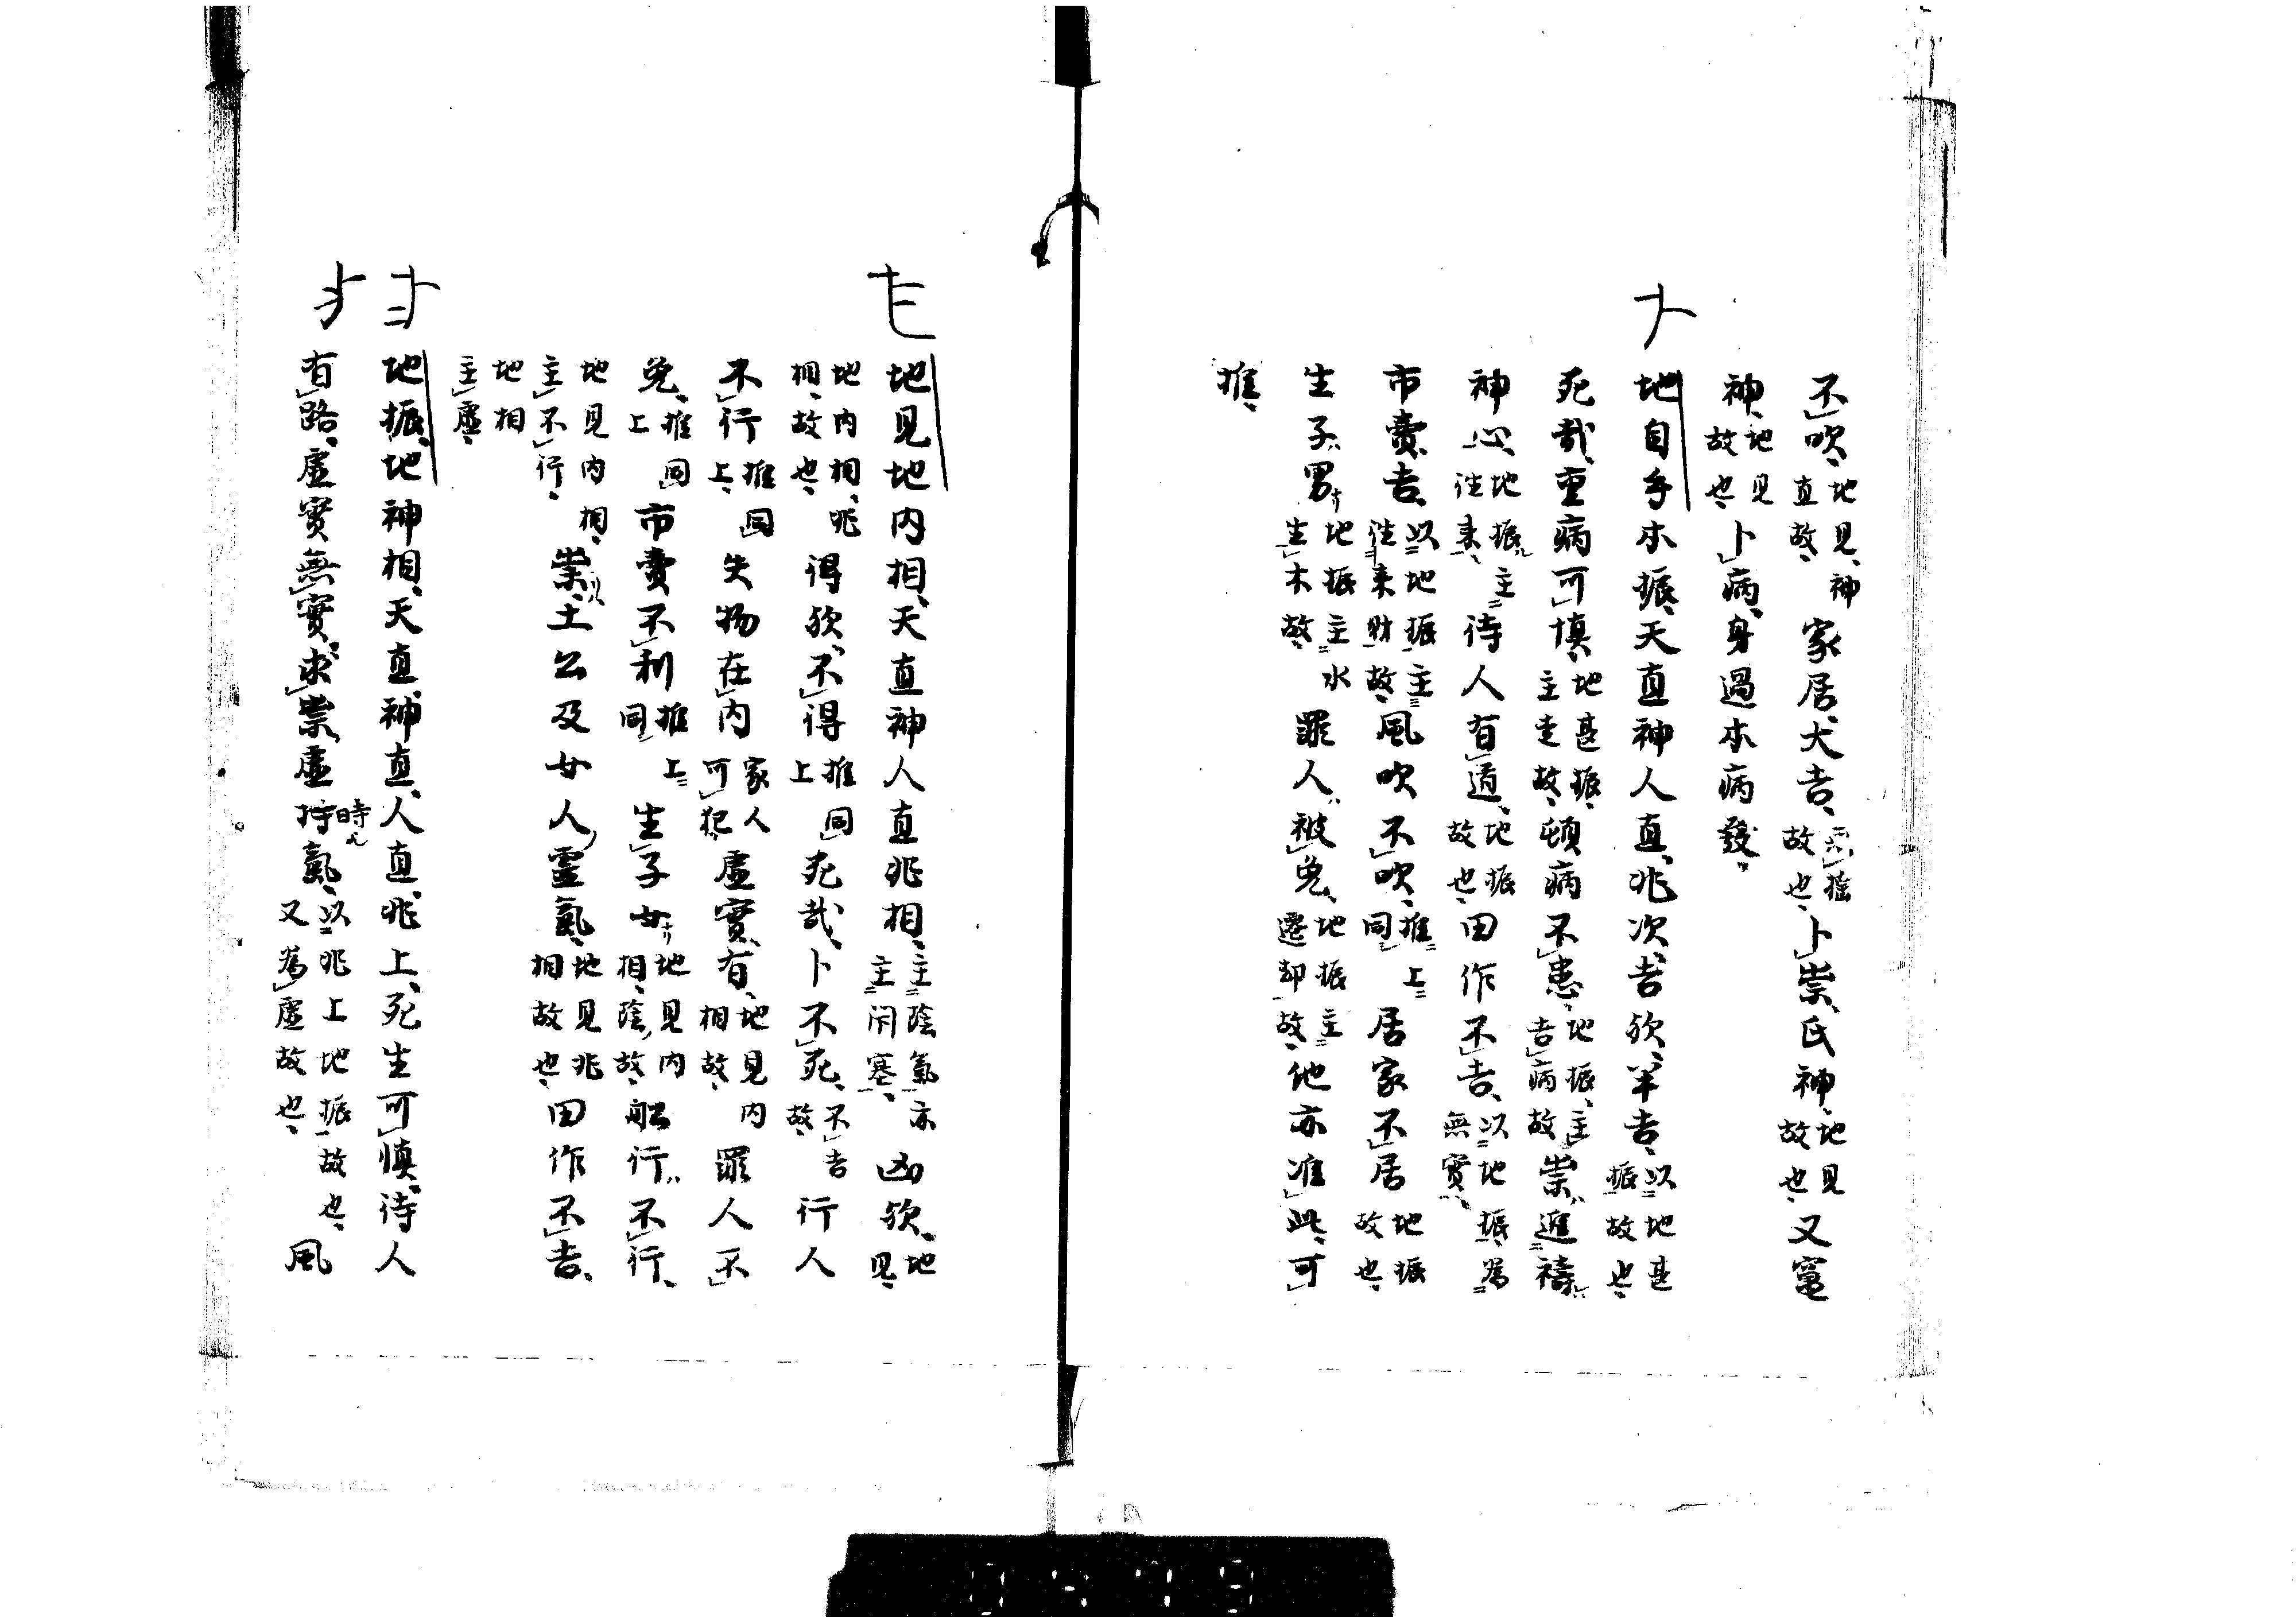 不吹、地見、神直故、家居犬吉、不揺故也、卜祟、氏神、地見故也、又竃
神、地見故也、卜病、身過本病發、
地自手本振、天直神人直、兆次、吉欤、半吉、以地甚振故也、
死哉、重病可慎、地甚振、主走故、頓病不患、地振、主吉病故、祟進祷
神心、地振主往来、待人有道、地振故也、田作不吉、以地振為無實、
市賣、吉、以地振主往来財故、風吹不吹、推上同、居家不居、地振故也、
生子、男、地振主水生木故、罪人被免、地振主遷却故、他亦准此、可
推、
地見地内相、天直神人直兆相、主陰氣亦主閇塞、凶欤、地見、
地内相、兆相、故也、得欤、不得、推同上、死哉、卜不死、不吉故、行人
不行、推同上、失物在内、家人可犯、虚實、有、地見内相故、罪人不
免、推同上、市賣不利、推上同、生子女、地見内相、陰故、船行不行、
地見内相、主不行、祟、土公及女人靈氣、地見兆相故也、田作不吉、
地相主虚、
地振、地神相、天直、神直、人直、兆上、死生可慎、待人
有路、虚實無實、求祟、虚持氣、時以兆上地振故也、又為虚故也、風